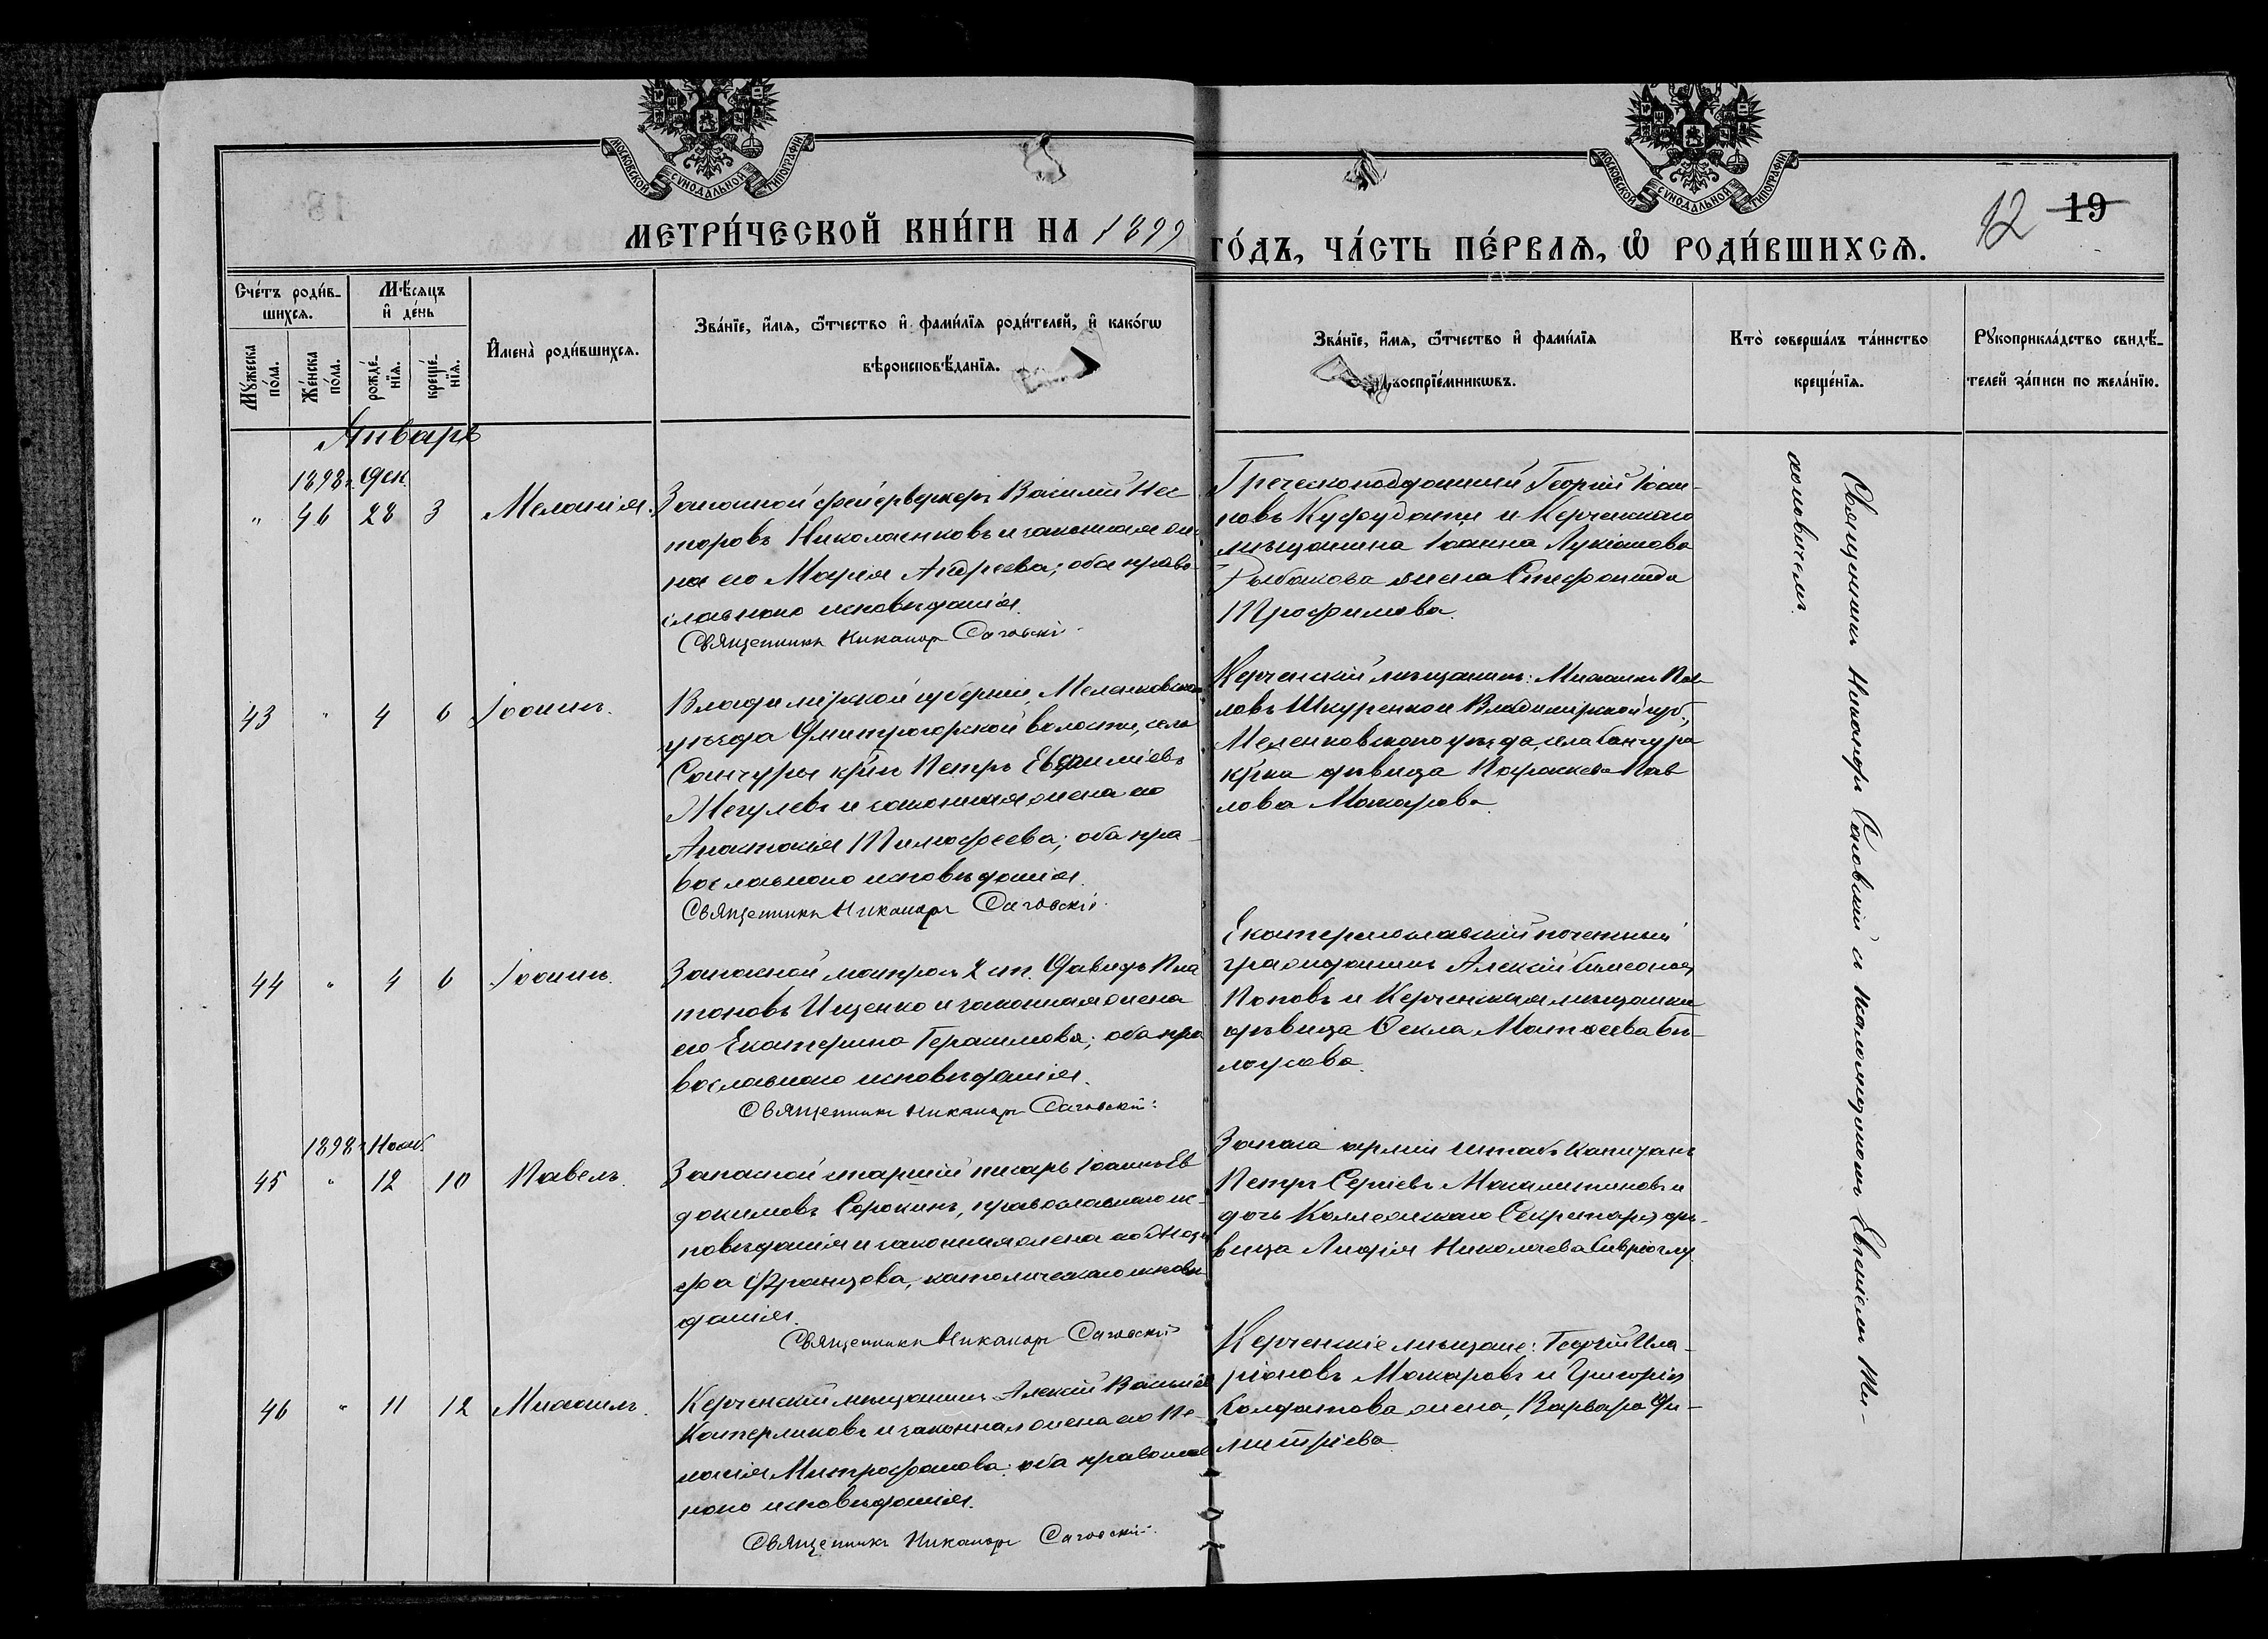 МОСКОВСКОЙ СѴНОДАЛЬНОЙ ТИПОГРАФІИ
МОСКОВСКОЙ СѴНОДАЛЬНОЙ ТИПОГРАФІИ
12 19
МЕТРИ́ЧЕСКОЙ КНИ́ГИ НА 1899
ГО́ДЪ, ЧА́СТЬ ПЕ́РВАѦ, Ѡ РОДИ́ВШИХСѦ.
Сче́тъ роди́в-
шихся.
Мѣ́сяцъ
и҆ де́нь
Мꙋ́жеска
по́ла.
Же́нска
по́ла.
рожде́-
нїя.
креще́-
нїя.
И҆мена̀ роди́вшихся.
Зва́нїе, и҆́мя, ѻ҆́тчество и҆ фами́лїя роди́телей, и҆ како́гѡ
вѣроисповѣ́данїя.
Зва́нїе, и҆́мя, ѻ҆́тчество и҆ фами́лїя
воспрїе́мникѡвъ.
Кто̀ соверша́лъ та́инство
креще́нїя.
Рꙋкоприкла́дство свидѣ́-
телей за́писи по жела́нїю.
Январь
1898 г. Дек.
" 46 28 3 Меланія.
Запасной фейерверкеръ Василій Нес-
торовъ Николаенковъ и законная же-
на его Марія Андреева; оба право-
славнаго исповѣданія.
Священникъ Никаноръ Саговскій
Греческоподданный Георгій Іоан-
новъ Куфудаки и Керченскаго
мѣщанина Іоанна Лукіанова
Рыбакова жена Стефанида
Трофимова.
43 " 4 6 Іоаннъ.
Владимірской губерніи, Меленковскаго
уѣзда Дмитрогорской волости, села
Санчуры кр̃нъ Петръ Евфиміевъ
Мегулевъ и законная жена его
Анастасія Тимофеева; оба пра-
вославнаго исповѣданія.
Священникъ Никаноръ Саговскій
Керченскій мѣщанинъ: Михаилъ Пав-
ловъ Шкуренко и Владимірской губ.,
Меленковскаго уѣзда, села Санчура
кр̃нка дѣвица Параскева Пав
лова Макарова.
44 " 4 6 Іоаннъ.
Запасной матросъ 2 ст. Давидъ Пла
тоновъ Ищенко и законная жена
его Екатерина Герасимова; оба пра
вославнаго исповѣданія.
Священникъ Никаноръ Саговскій
Екатеринославскій почетный
гражданинъ Алексій Симеоновъ
Поповъ и Керченская мѣщанка
дѣвица Ѳекла Матвеева Бѣ-
лоусова.
1898 г. Нояб.
45 " 12 10 Павелъ.
Запасной старшій писарь Іоаннъ Ев
докимовъ Сорокинъ, православнаго ис-
повѣданія и законная жена его
Францова, католическаго исповѣ-
данія.
Священникъ Никаноръ Саговскій
Запаса арміи штабъ Капитанъ
Петръ Сергіевъ и
дочь Коллежскаго Секретаря дѣ-
вица Лидія Николаева
46 " 11 12 Михаилъ.
Керченскій мѣщанинъ Алексій Васильевъ
Катерликовъ и законная жена его Пе-
лагія Митрофанова: оба православ
наго исповѣданія.
Священникъ Никаноръ Саговскій
Керченскіе мѣщане: Георгій Ила-
ріоновъ Макаровъ и Григорія
Солдатова жена, Варвара Ди-
митріева.
Священникъ Никаноръ Саговскій съ псаломщикомъ Евгеніемъ